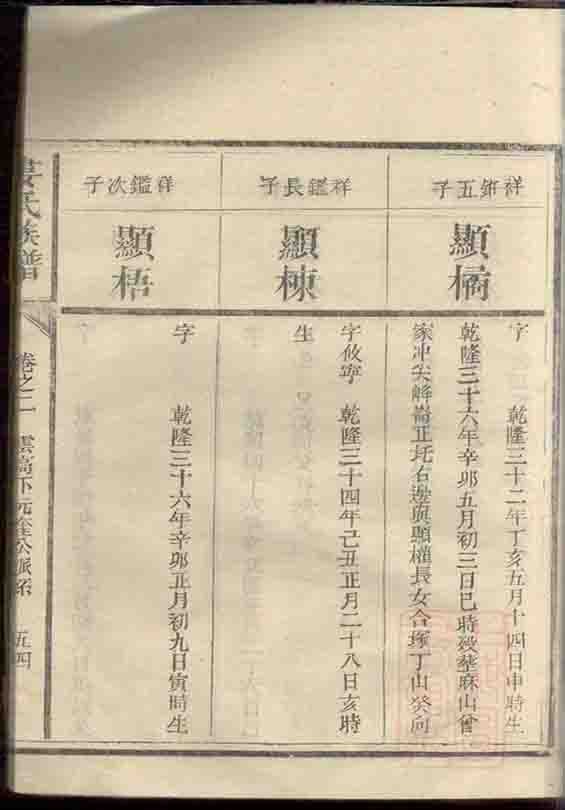 祥鈰五子
顯橘
字 乾隆三十二年丁亥五月十四日申時生
乾隆三十六年辛卯五月初三日巳時歿塟麻山曾
家冲尖峰崙正圫右邊與顯權長女合塚丁山癸向
祥鑑長子
顯棟
字攸寧 乾隆三十四年己丑正月二十八日亥時
生
祥鑑次子
顯梧
字 乾隆三十六年辛卯正月初九日寅時生
氏族譜
卷之二 雲高下元 公派系 五四